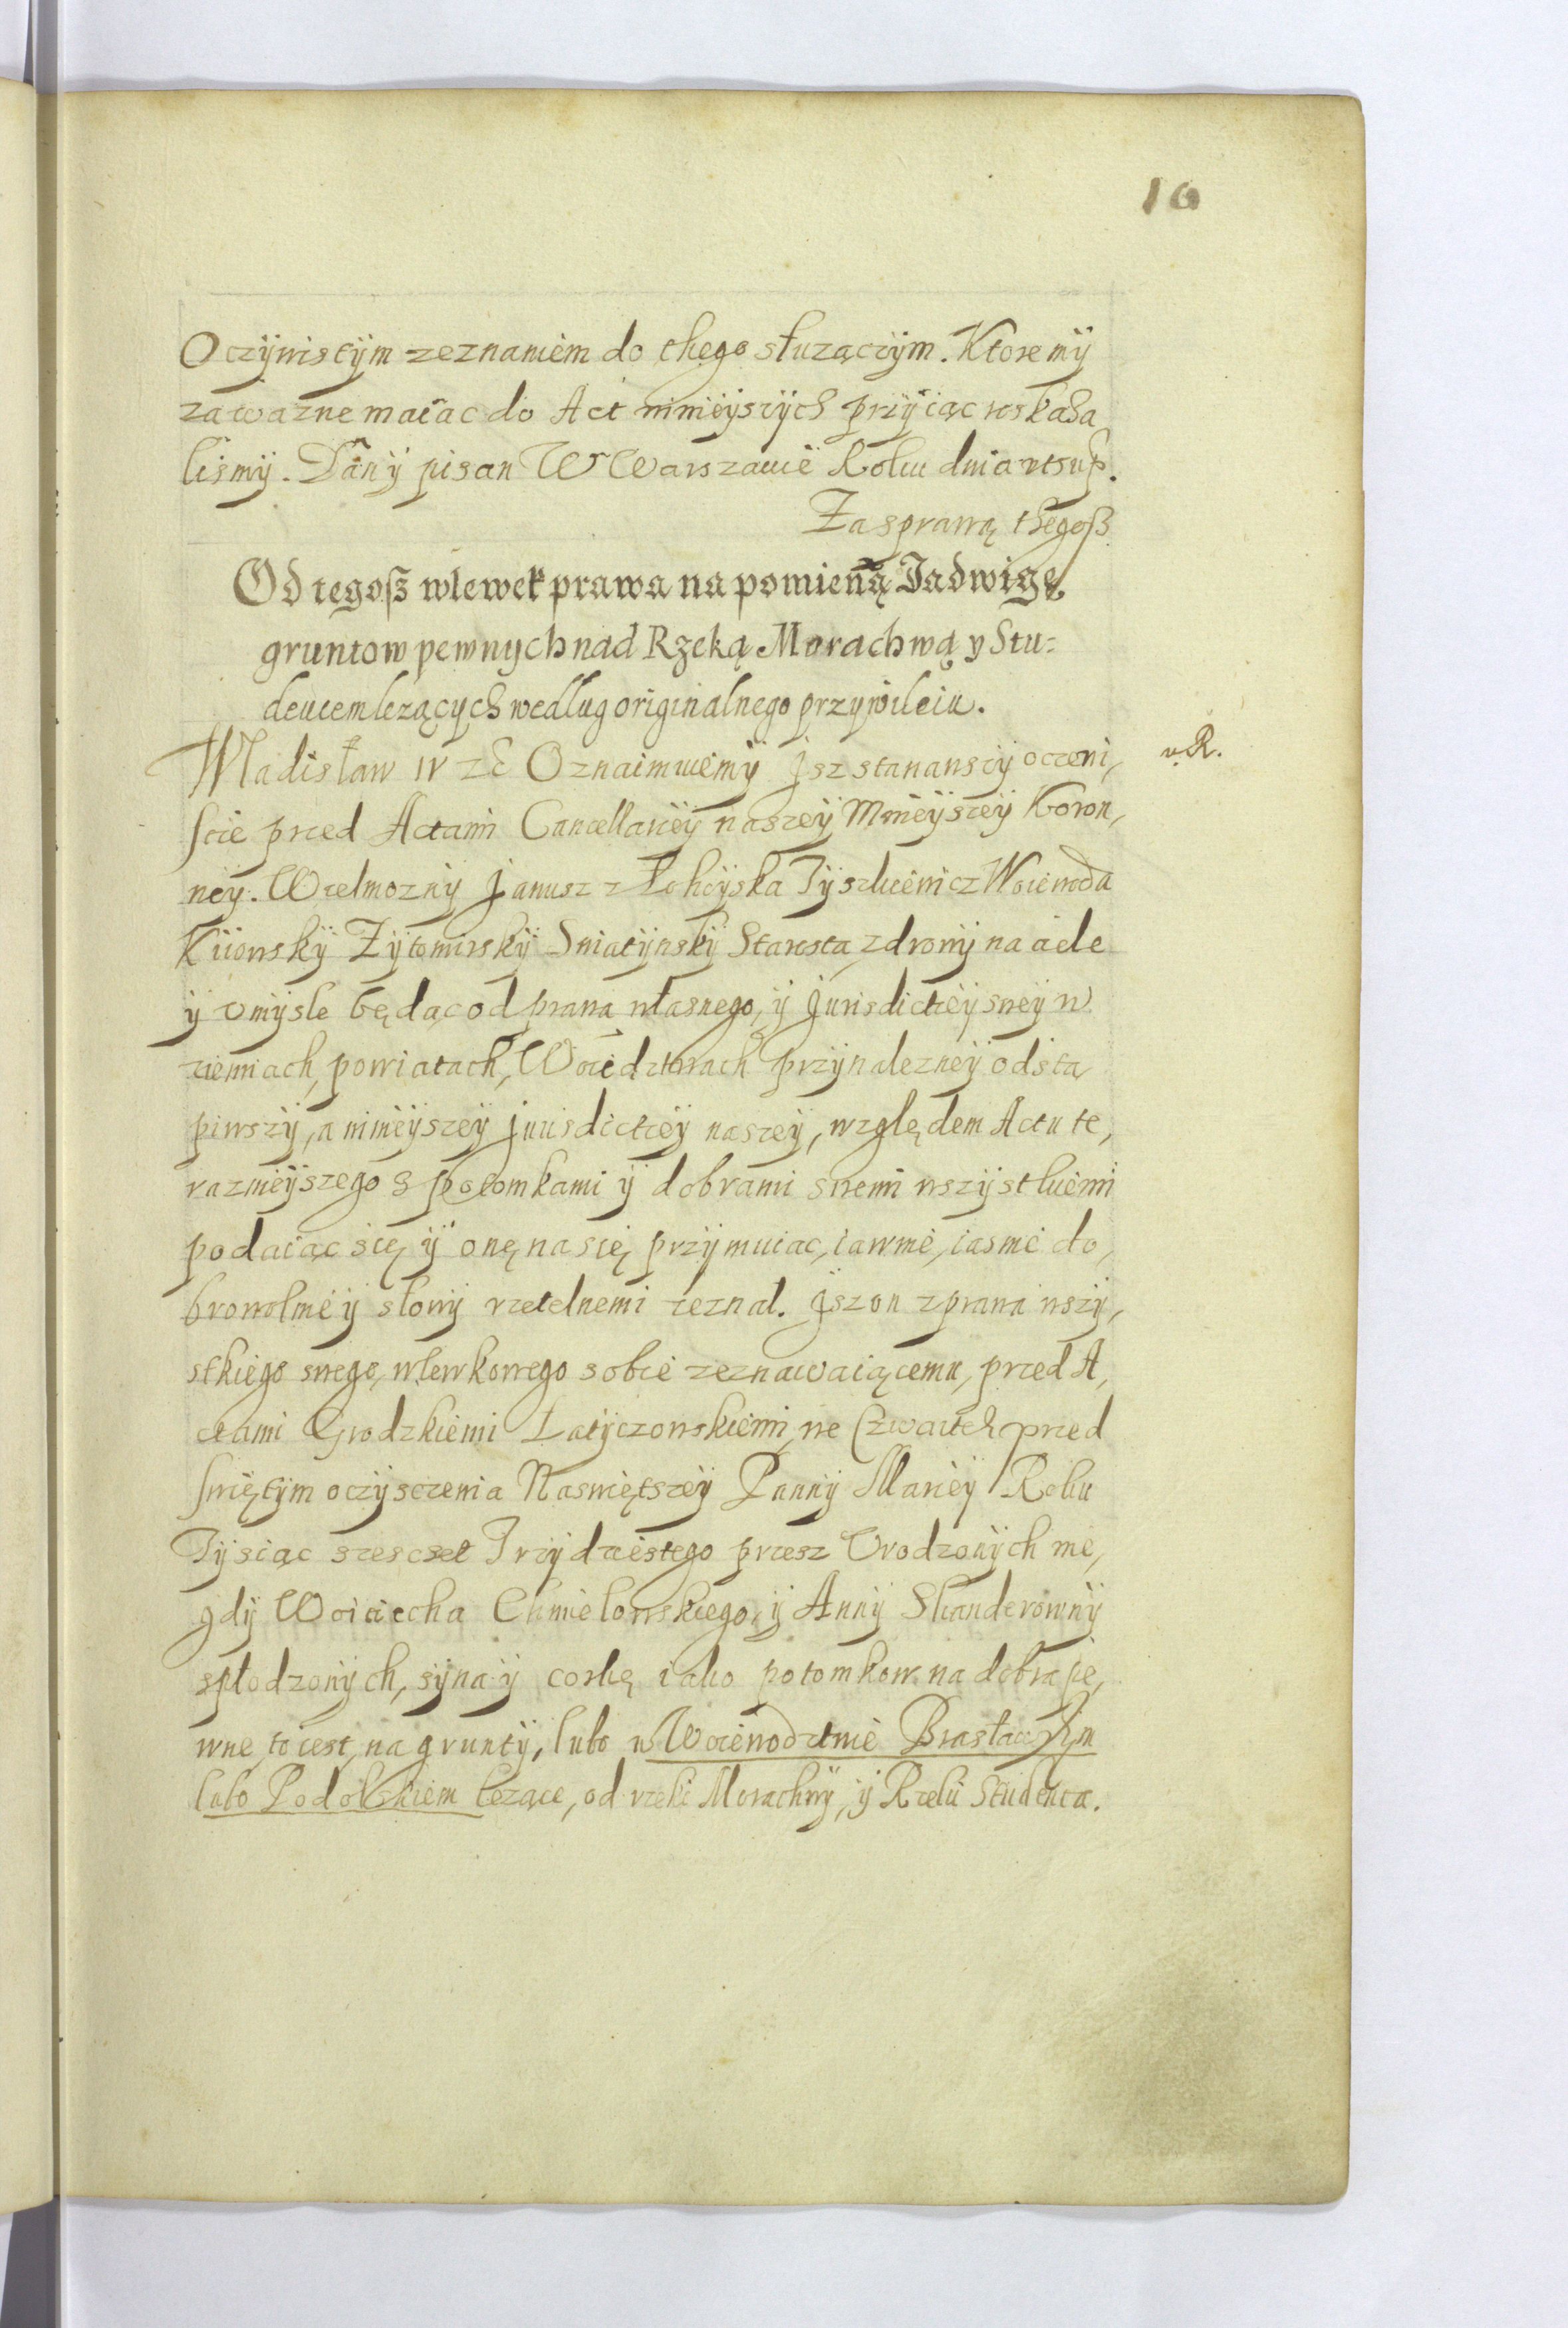 10
Oczÿwistÿm zeznaniem do thego słuzączÿm. Ktore mÿ
za wazne maiac do Act ninieÿszÿch przÿiąc roskaza
lismÿ. Dan ÿ pisan W Warszawie Roku dnia utsup.
Za sprawą thegoß
Od tegosz wlewek prawa na pomieną Jadwigę
gruntow pewnych nad Rzeką Morachwą y Stu=
dencem lezących wedlug originalnego przywileiu.
Wladisław IV zc Oznaimuiemÿ Jsz stanawszÿ oczewi,
v. R.
scie przed Actami Cancellarieÿ naszeÿ Mnieÿszeÿ Koron,
neÿ. Wielmoznÿ Janusz z Łohoÿska Tÿszkiewicz Woiewoda
Kiiowskÿ Zÿtomirskÿ Sniatÿnskÿ Starosta zdrowÿ na ciele
ÿ umÿsle będąc od prawa własnego, ÿ Jurisdictieÿ sweÿ w
ziemiach, powiatach, Woiedztwach przÿnalezneÿ odsta
piwszÿ, a ninieÿszeÿ Jurisdictieÿ naszeÿ, względem Actu te,
raznieÿszego s potomkami ÿ dobrami swemi wszÿstkiemi
podaiąc się ÿ onę na się przÿmuiac, iawnie, iasnie do,
browolnie ÿ słowÿ rzetelnemi zeznal. Jsz on z prawa wszÿ,
stkiego swego, wlewkowego sobie zeznawaiącemu, przed A,
ctami Grodzkiemi Latÿczowskiemi, we Czwartek przed
swiętÿm oczÿsczenia Naswiętszeÿ Pannÿ Marieÿ Roku
Tÿsiąc szescset Trzÿdziestego przesz Urodzonÿch nie,
gdÿ Woiciecha Chmielowskiego, ÿ Annÿ Skanderownÿ
spłodzonÿch, sÿna ÿ corkę iako potomkow na dobra pe,
wne to iest, na gruntÿ, lubo w Woiewodztwie Brasławskim
lubo Podolskiem lezące, od rzeki Morachwÿ, ÿ Rzeki Studenca.